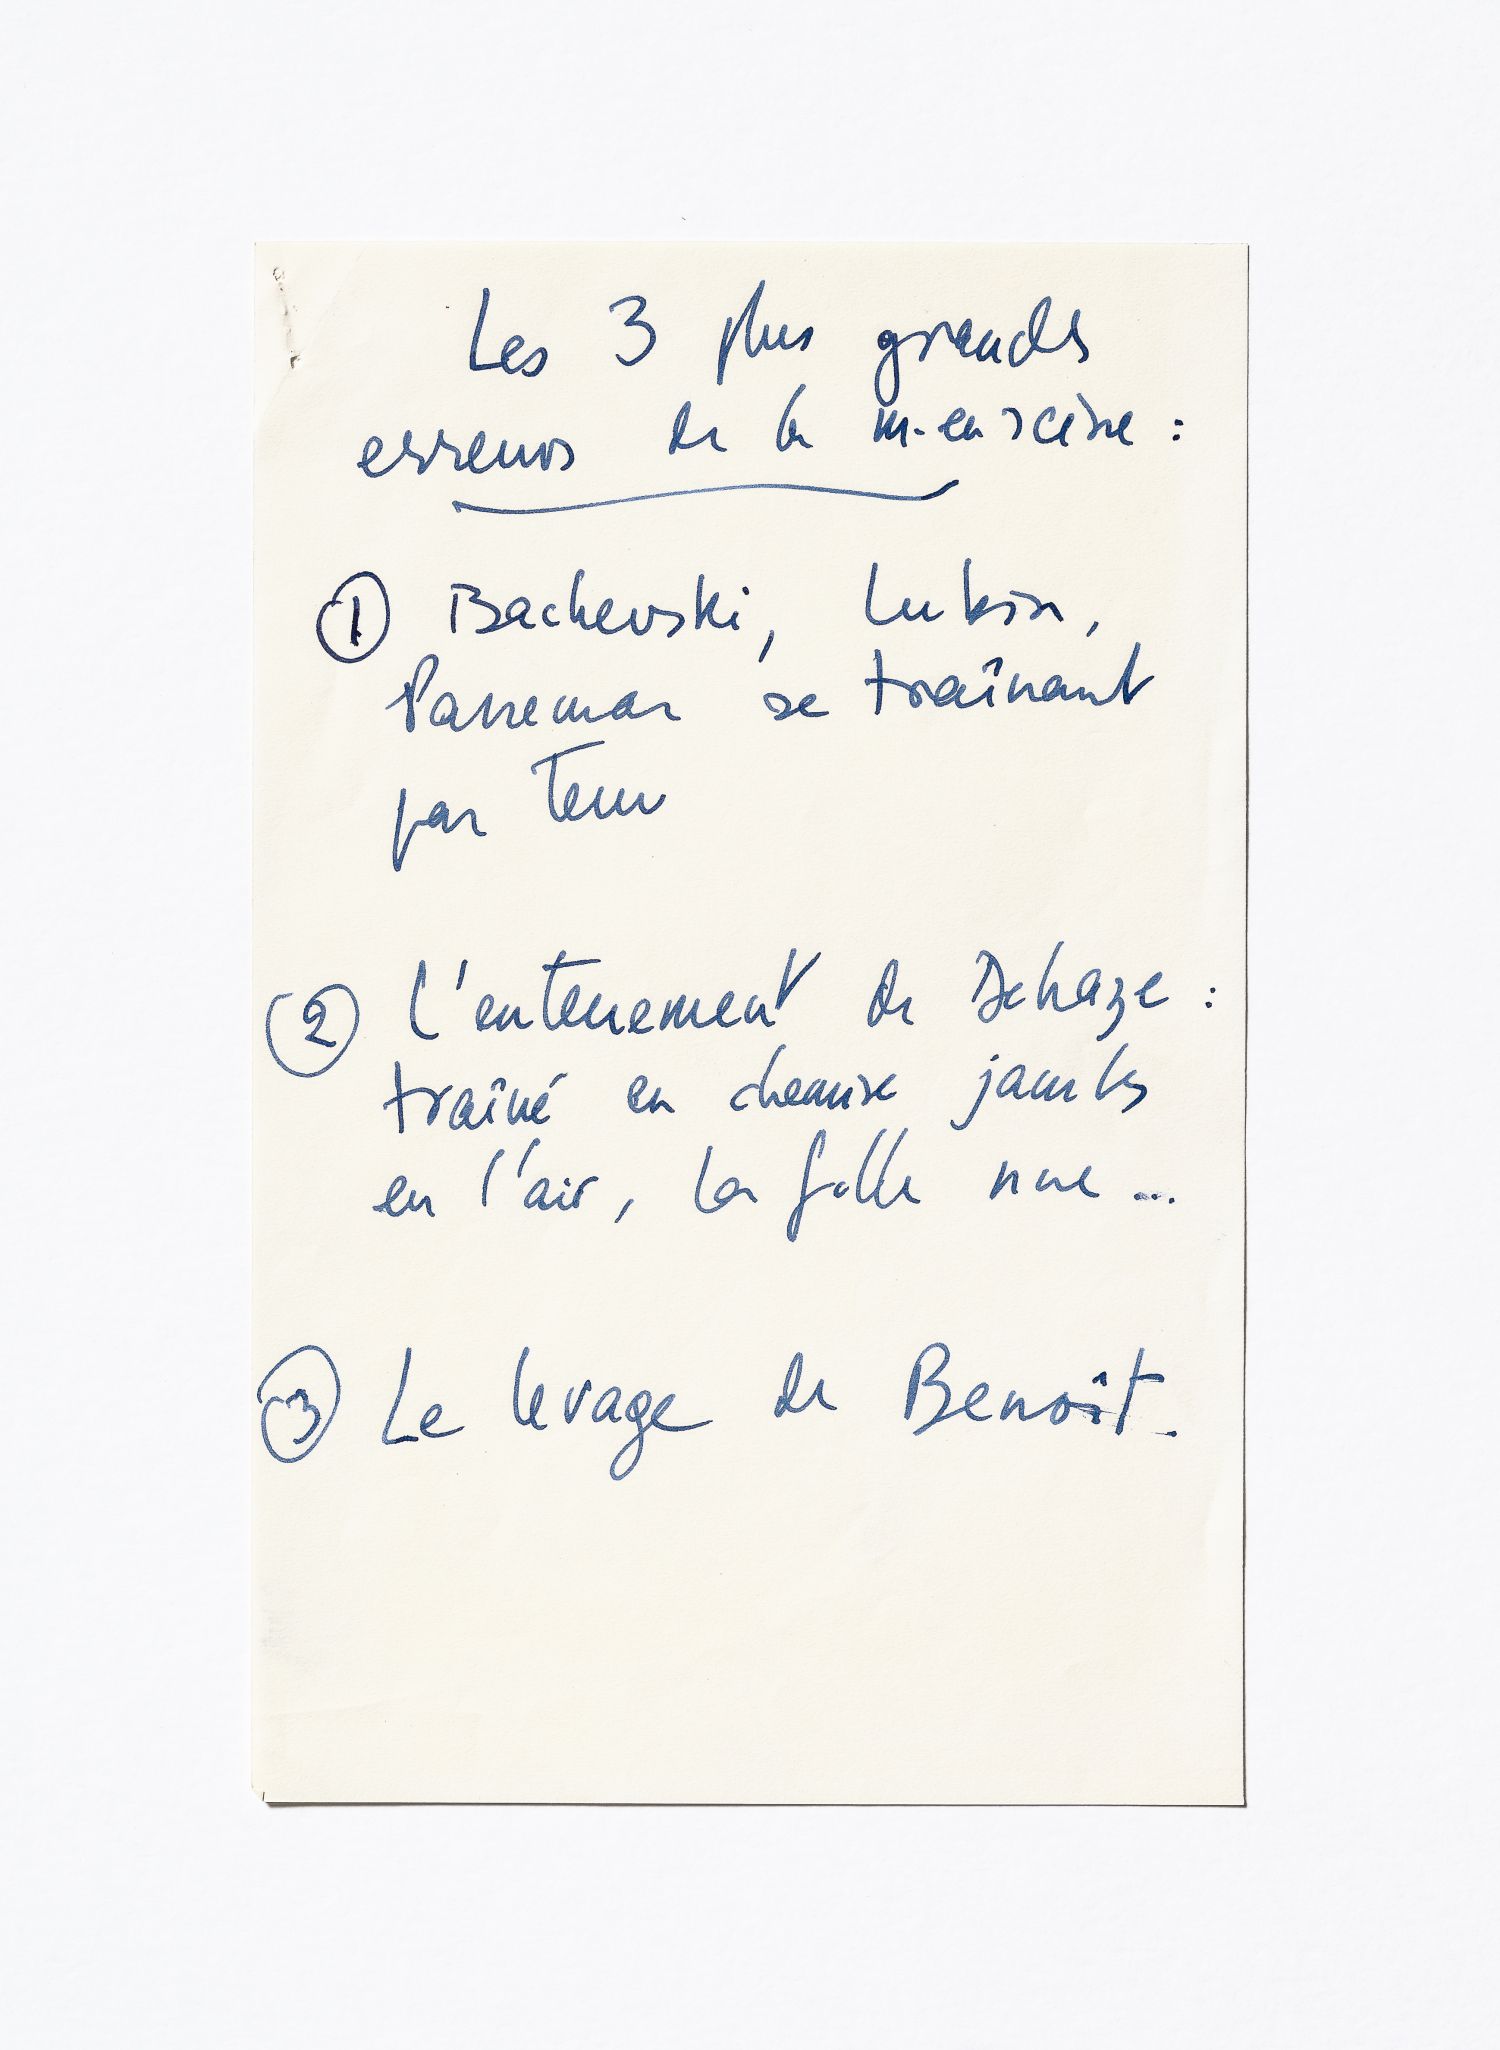 Les 3 plus grandes
erreurs de la m. en scène :
① Bachevski, Lukin,
Passemar se traînant
par terre
② L'enterrement de Dehaze :
traîné en chemise jambes
en l'air, la folle nue ...
③ Le levage de Benoît.